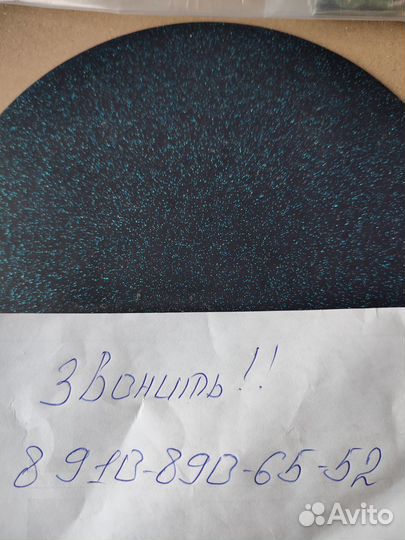 Звонить!!
8910-890-65-52
Avito